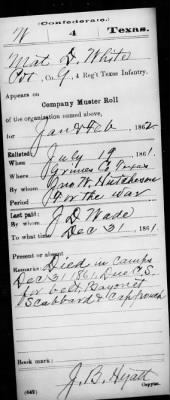 (Confederate.)
W 4 Texas.
Mat D. White
Pvt, Co. G, 4 Reg't Texas Infantry.
Appears on
Company Muster Roll
of the organization named above,
for Jan & Feb, 1862
Enlisted:
When July 19, 1861.
Where Grimes Co Texas
By whom Jno W. Hutcheson
Period For the war
Last paid:
By whom J D Wade
To what time Dec 31, 1861.
Present or absent
Remarks: Died in camps
Dec 31 1861. Due C.S.
for belt, Bayonet
Scabbard & cap pouch
Book mark:
J. B. Hyatt
(642) Copyist.